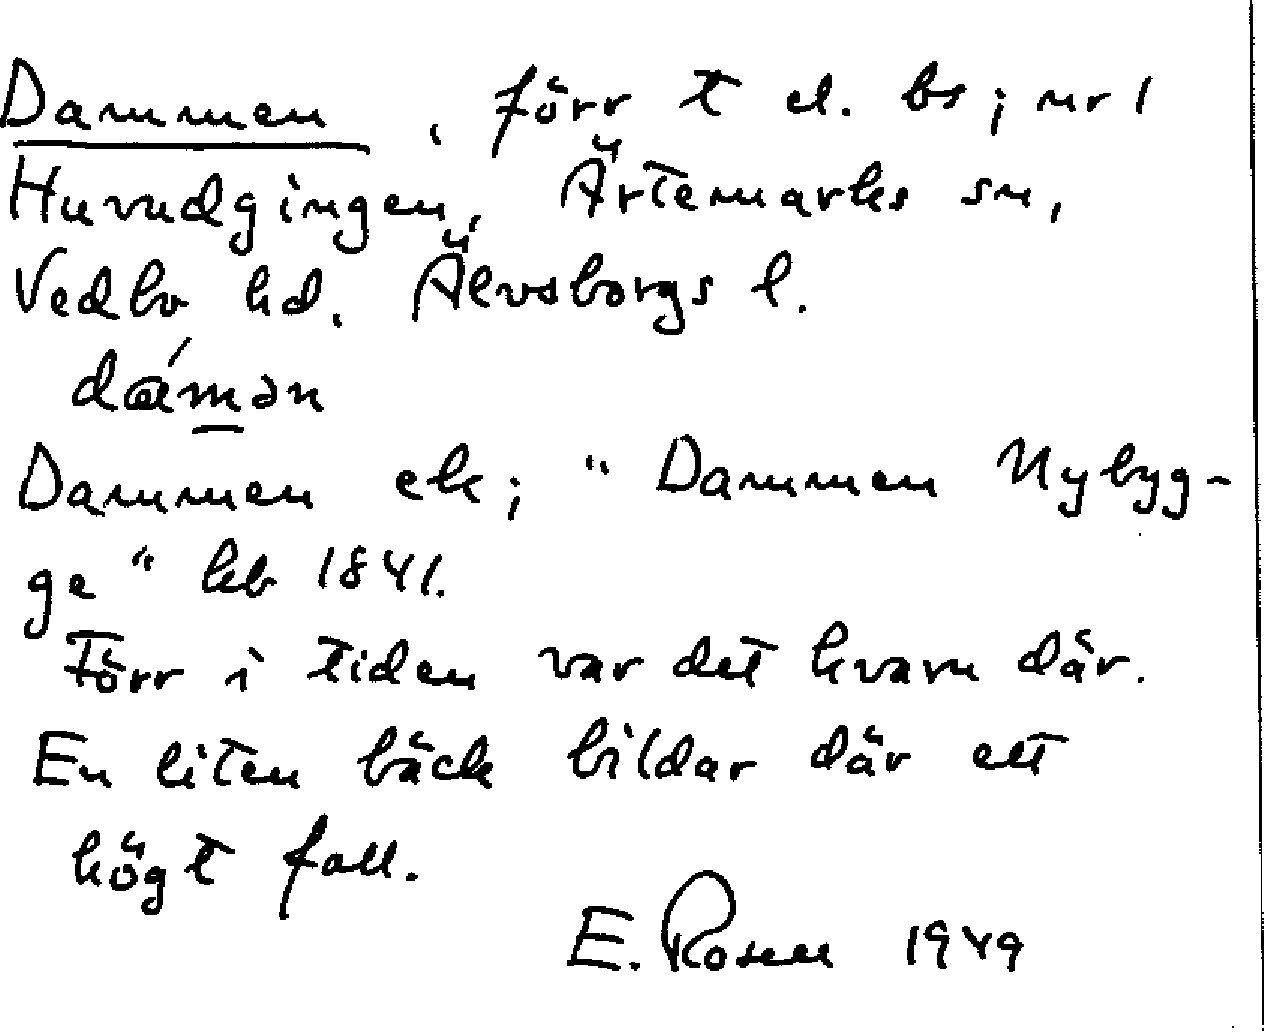 Dammen, förr t el. bs; nr 1
Huvudgingen, Ärtemarks sn,
Vedbo hd. Älvsborgs l.
dámən
Dammen ek; "Dammen Nybyg-
ge" hb 1841.
Förr i tiden var det kvarn där.
En liten bäck bildar där ett
högt fall.
E. Rosen 1949